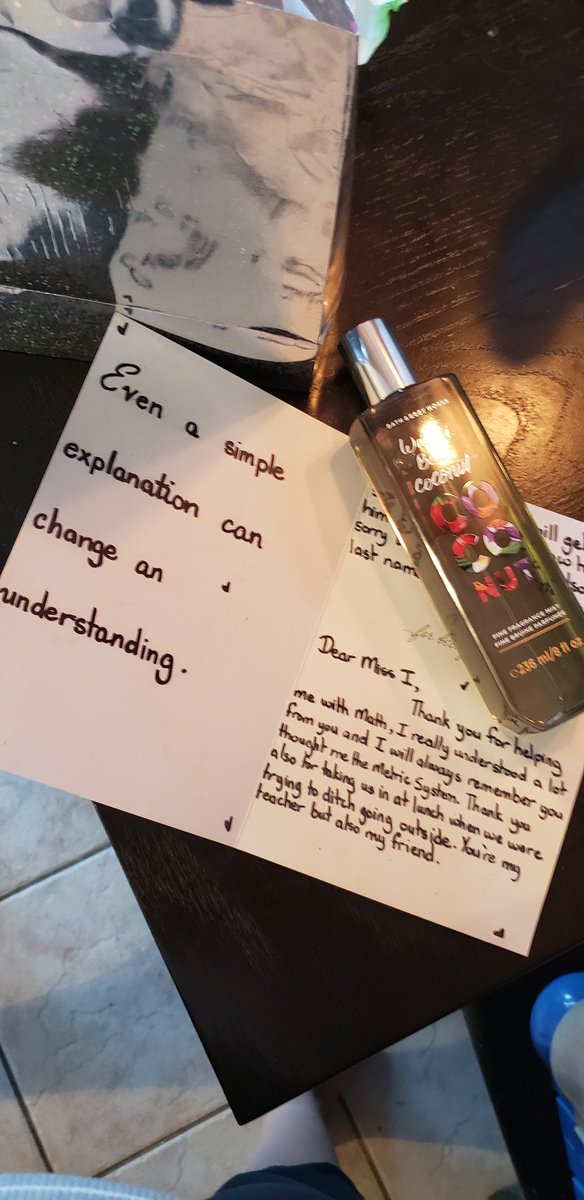 Even a simple
explanation can
change an
understanding.
him
sorry
last nam
ill get
w h
Dear Miss I,
Thank you for helping
me with Math, I really understood a lot
from you and I will always remember you
thought me the Metric System. Thank you
also for taking us in at lunch when we were
trying to ditch going outside. You're my
teacher but also my friend.
BATH & BODY WORKS
coconut
CO
CO
NUT
FINE FRAGRANCE MIST
FINE BRUME PARFUMÉE
℮236 ml/8 fl oz